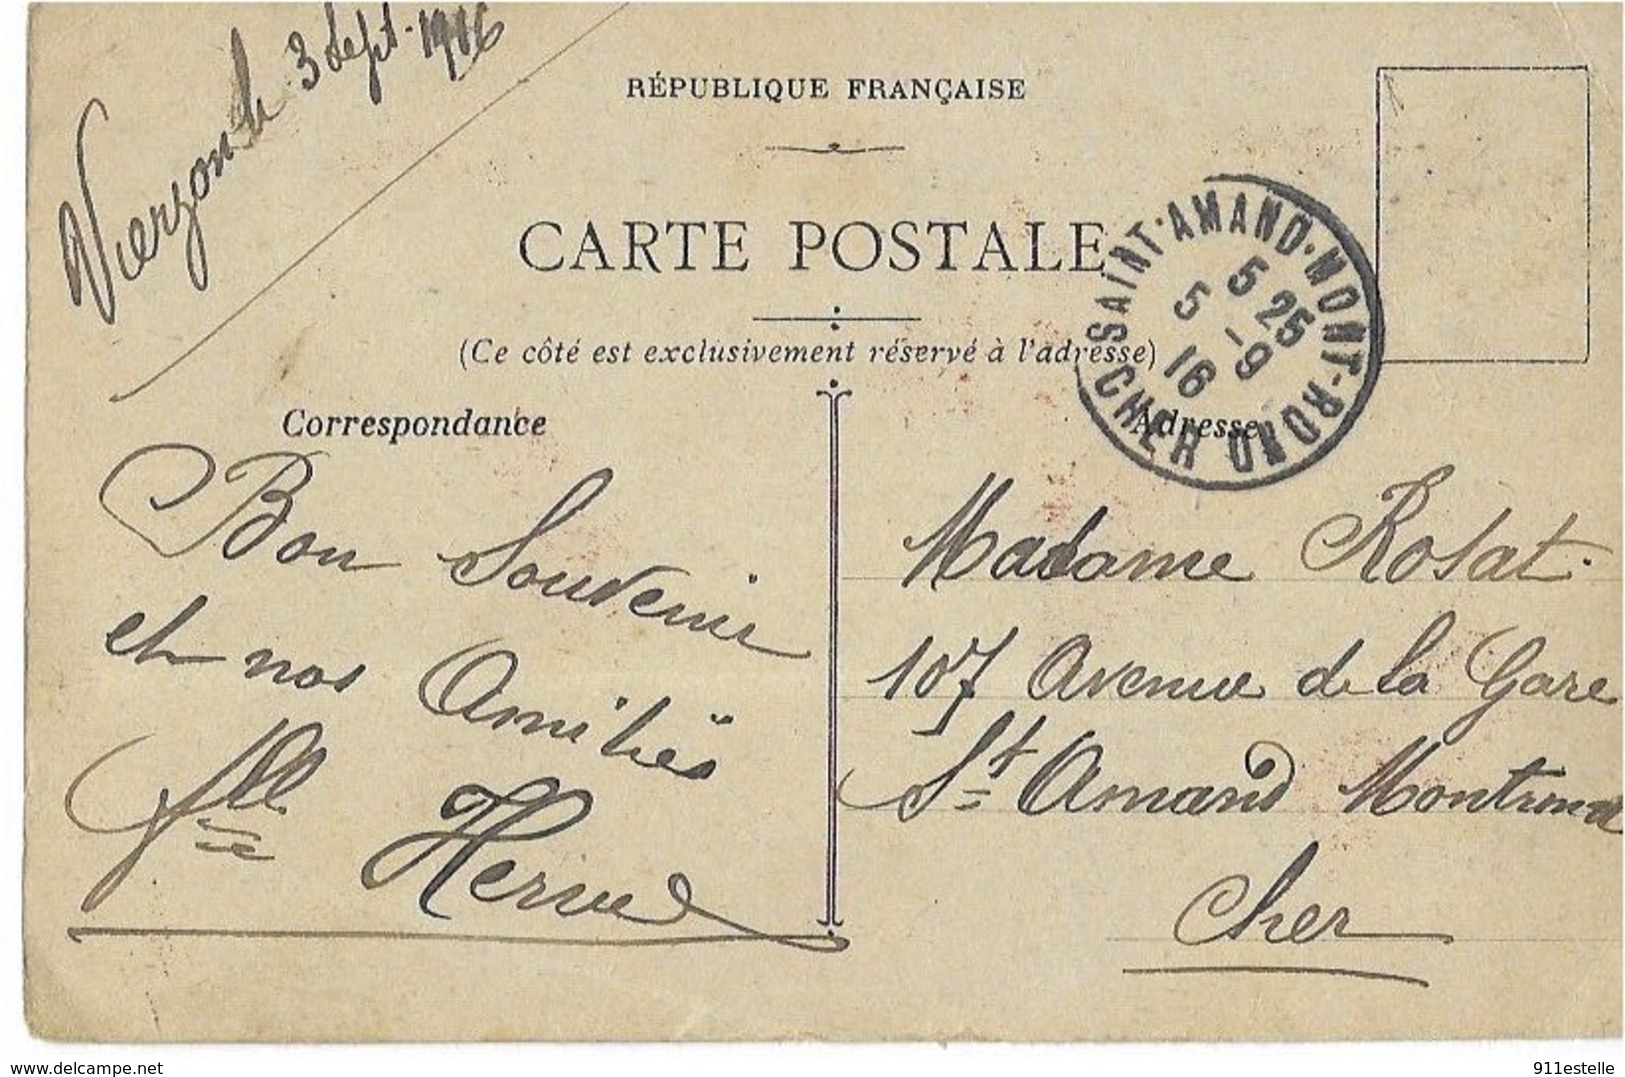 Vierzon le 3 Sept. 1916
RÉPUBLIQUE FRANÇAISE
CARTE POSTALE
(Ce côté est exclusivement réservé à l'adresse)
SAINT-AMAND-MONT-ROND
5 25
5 -9
16
CHER
Correspondance
Bon Souvenir
et nos Amitiés
Mlle Herve
Adresse
Madame Rosat.
107 Avenue de la Gare
St Amand Montrond
Cher
www.delcampe.net
911estelle